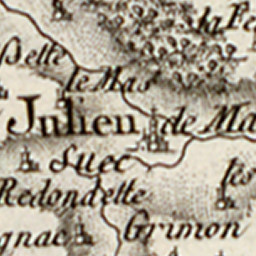 la Fe
Belle
le Mas
Julien de Ma
Suec
les
Redondette
gnac
Grimon